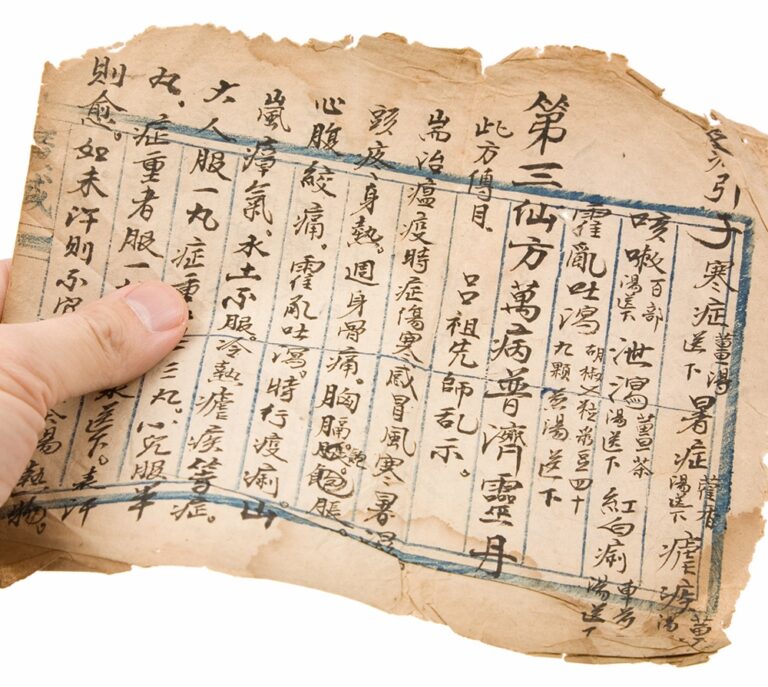 引子寒症薑湯送下暑症藿香湯送下瘧疾湯
咳嗽百部湯送下泄瀉薑茶湯送下紅白痢車前湯送下
霍亂吐瀉胡椒粒彔豆四十九顆煎湯送下
第三仙方萬病普濟靈丹
此方傳自 呂祖先師乩示。
耑治瘟疫時症傷寒感冒風寒暑濕。
頭疼身熱。週身骨痛。胸膈飽脹。
心腹絞痛。霍乱吐瀉。時行疫痢。山
嵐瘴氣、水土不服。冷熱瘧疾等症。
大人服一丸症重三丸。小兒服半
丸、症重者服一送下。表汗
則愈。如未汗則不宜湯熱物。